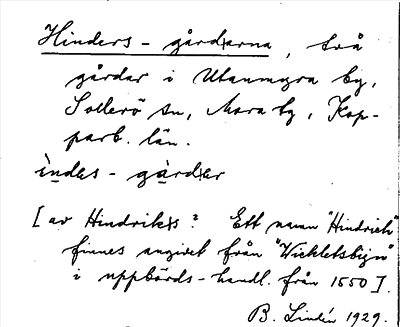 Hinders-gårdarna, två
gårdar i Utanmyra by,
Sollerö sn, Mora tg, Kop-
parb. län.
ìndes-gàrder
[av Hindriks? Ett namn "Hindrich"
finnes angivet från "Wichletsbijn"
i uppbörds-handl. från 1550].
B. Lindén 1929.